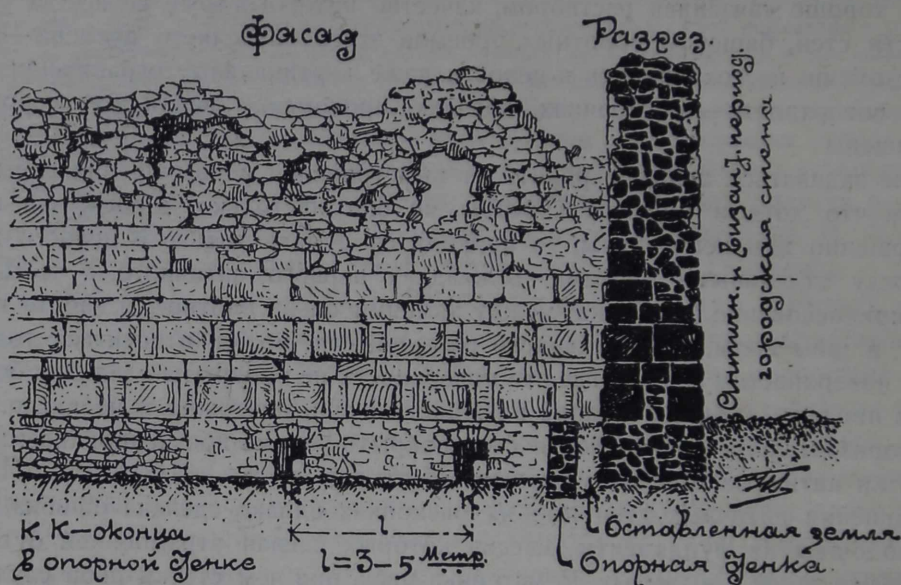 Фасад
Разрез.
Античн. и визант. период.
городская стена
К. К — оконца
в опорной стенке
к к
l
l = 3 – 5 метр.
Оставленная земля
Опорная стенка